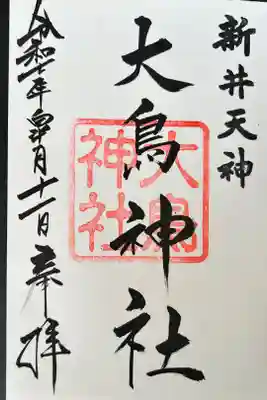 新井天神
大鳥神社
大鳥
神社
令和元年 月十一日 奉拝